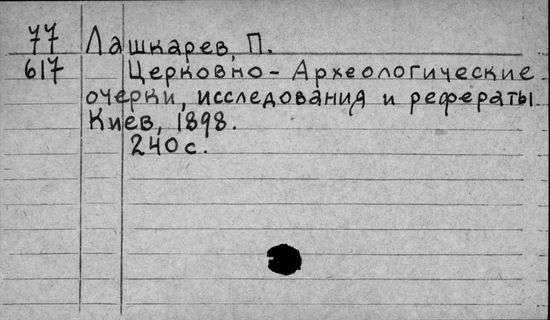 77 Лашкарев, П.
617 Церковно-Археологические
очерки, исследования и рефераты
Киев, 1898.
240 с.